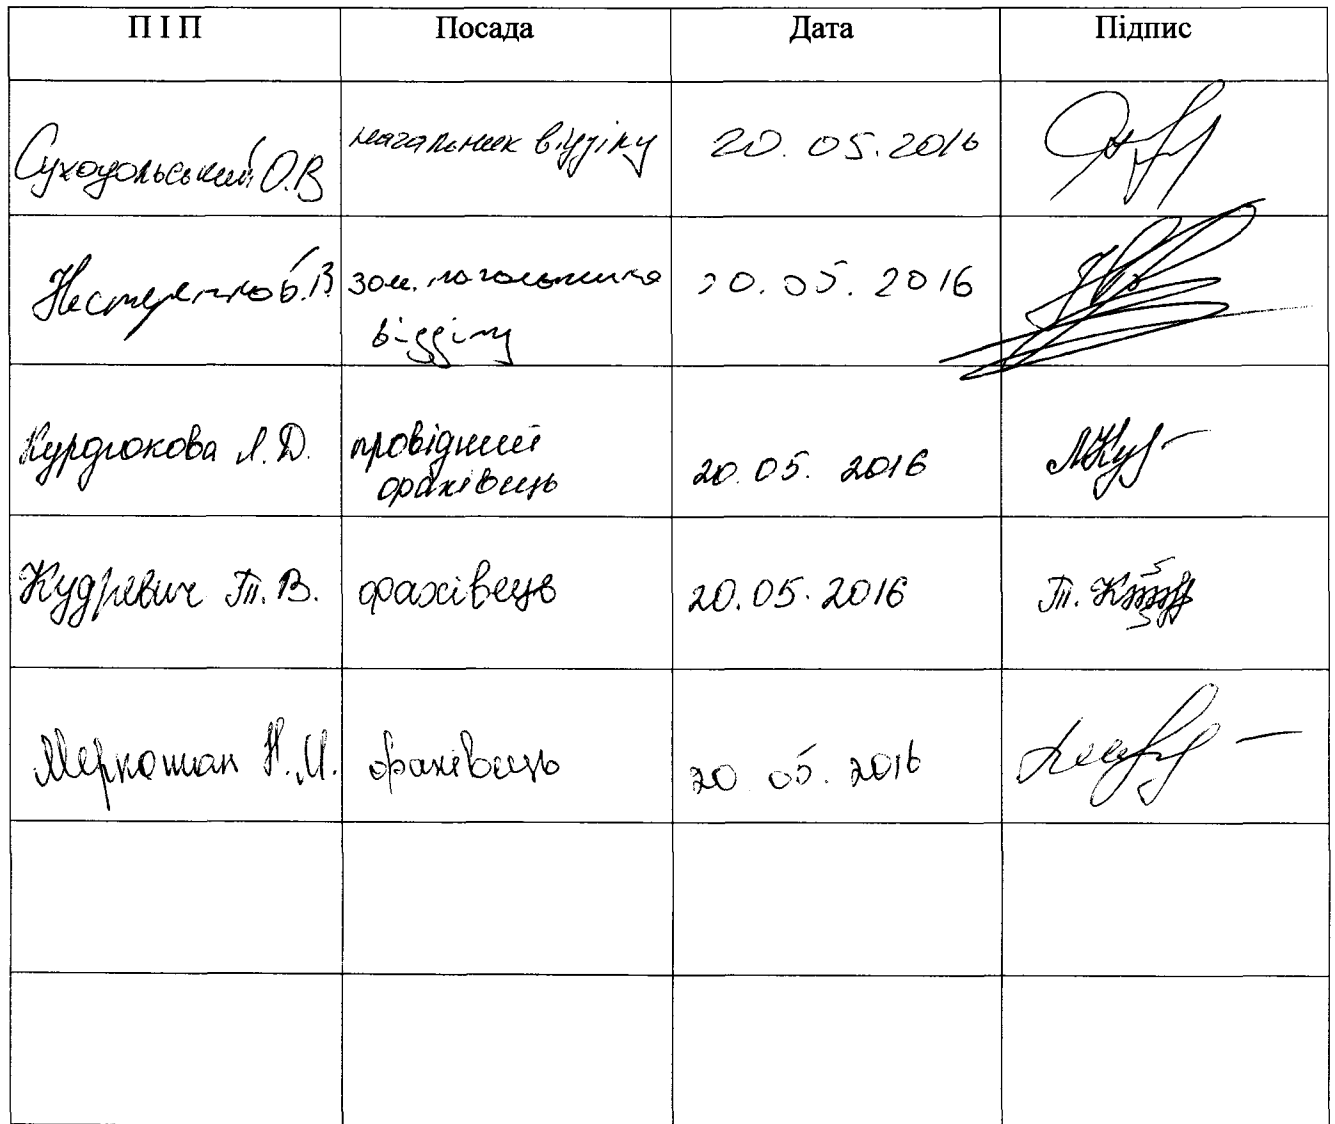 П І П Посада Дата Підпис
Суходольський О.В начальник відділу 20.05.2016
Нестеренко Є.В зам. начальника 20.05.2016
відділу
Курдюкова Л.Д. провідний 20.05.2016
фахівець
Кудревич Т.В. фахівець 20.05.2016 Т.
Меркотан Н.М. фахівець 20 05. 2016